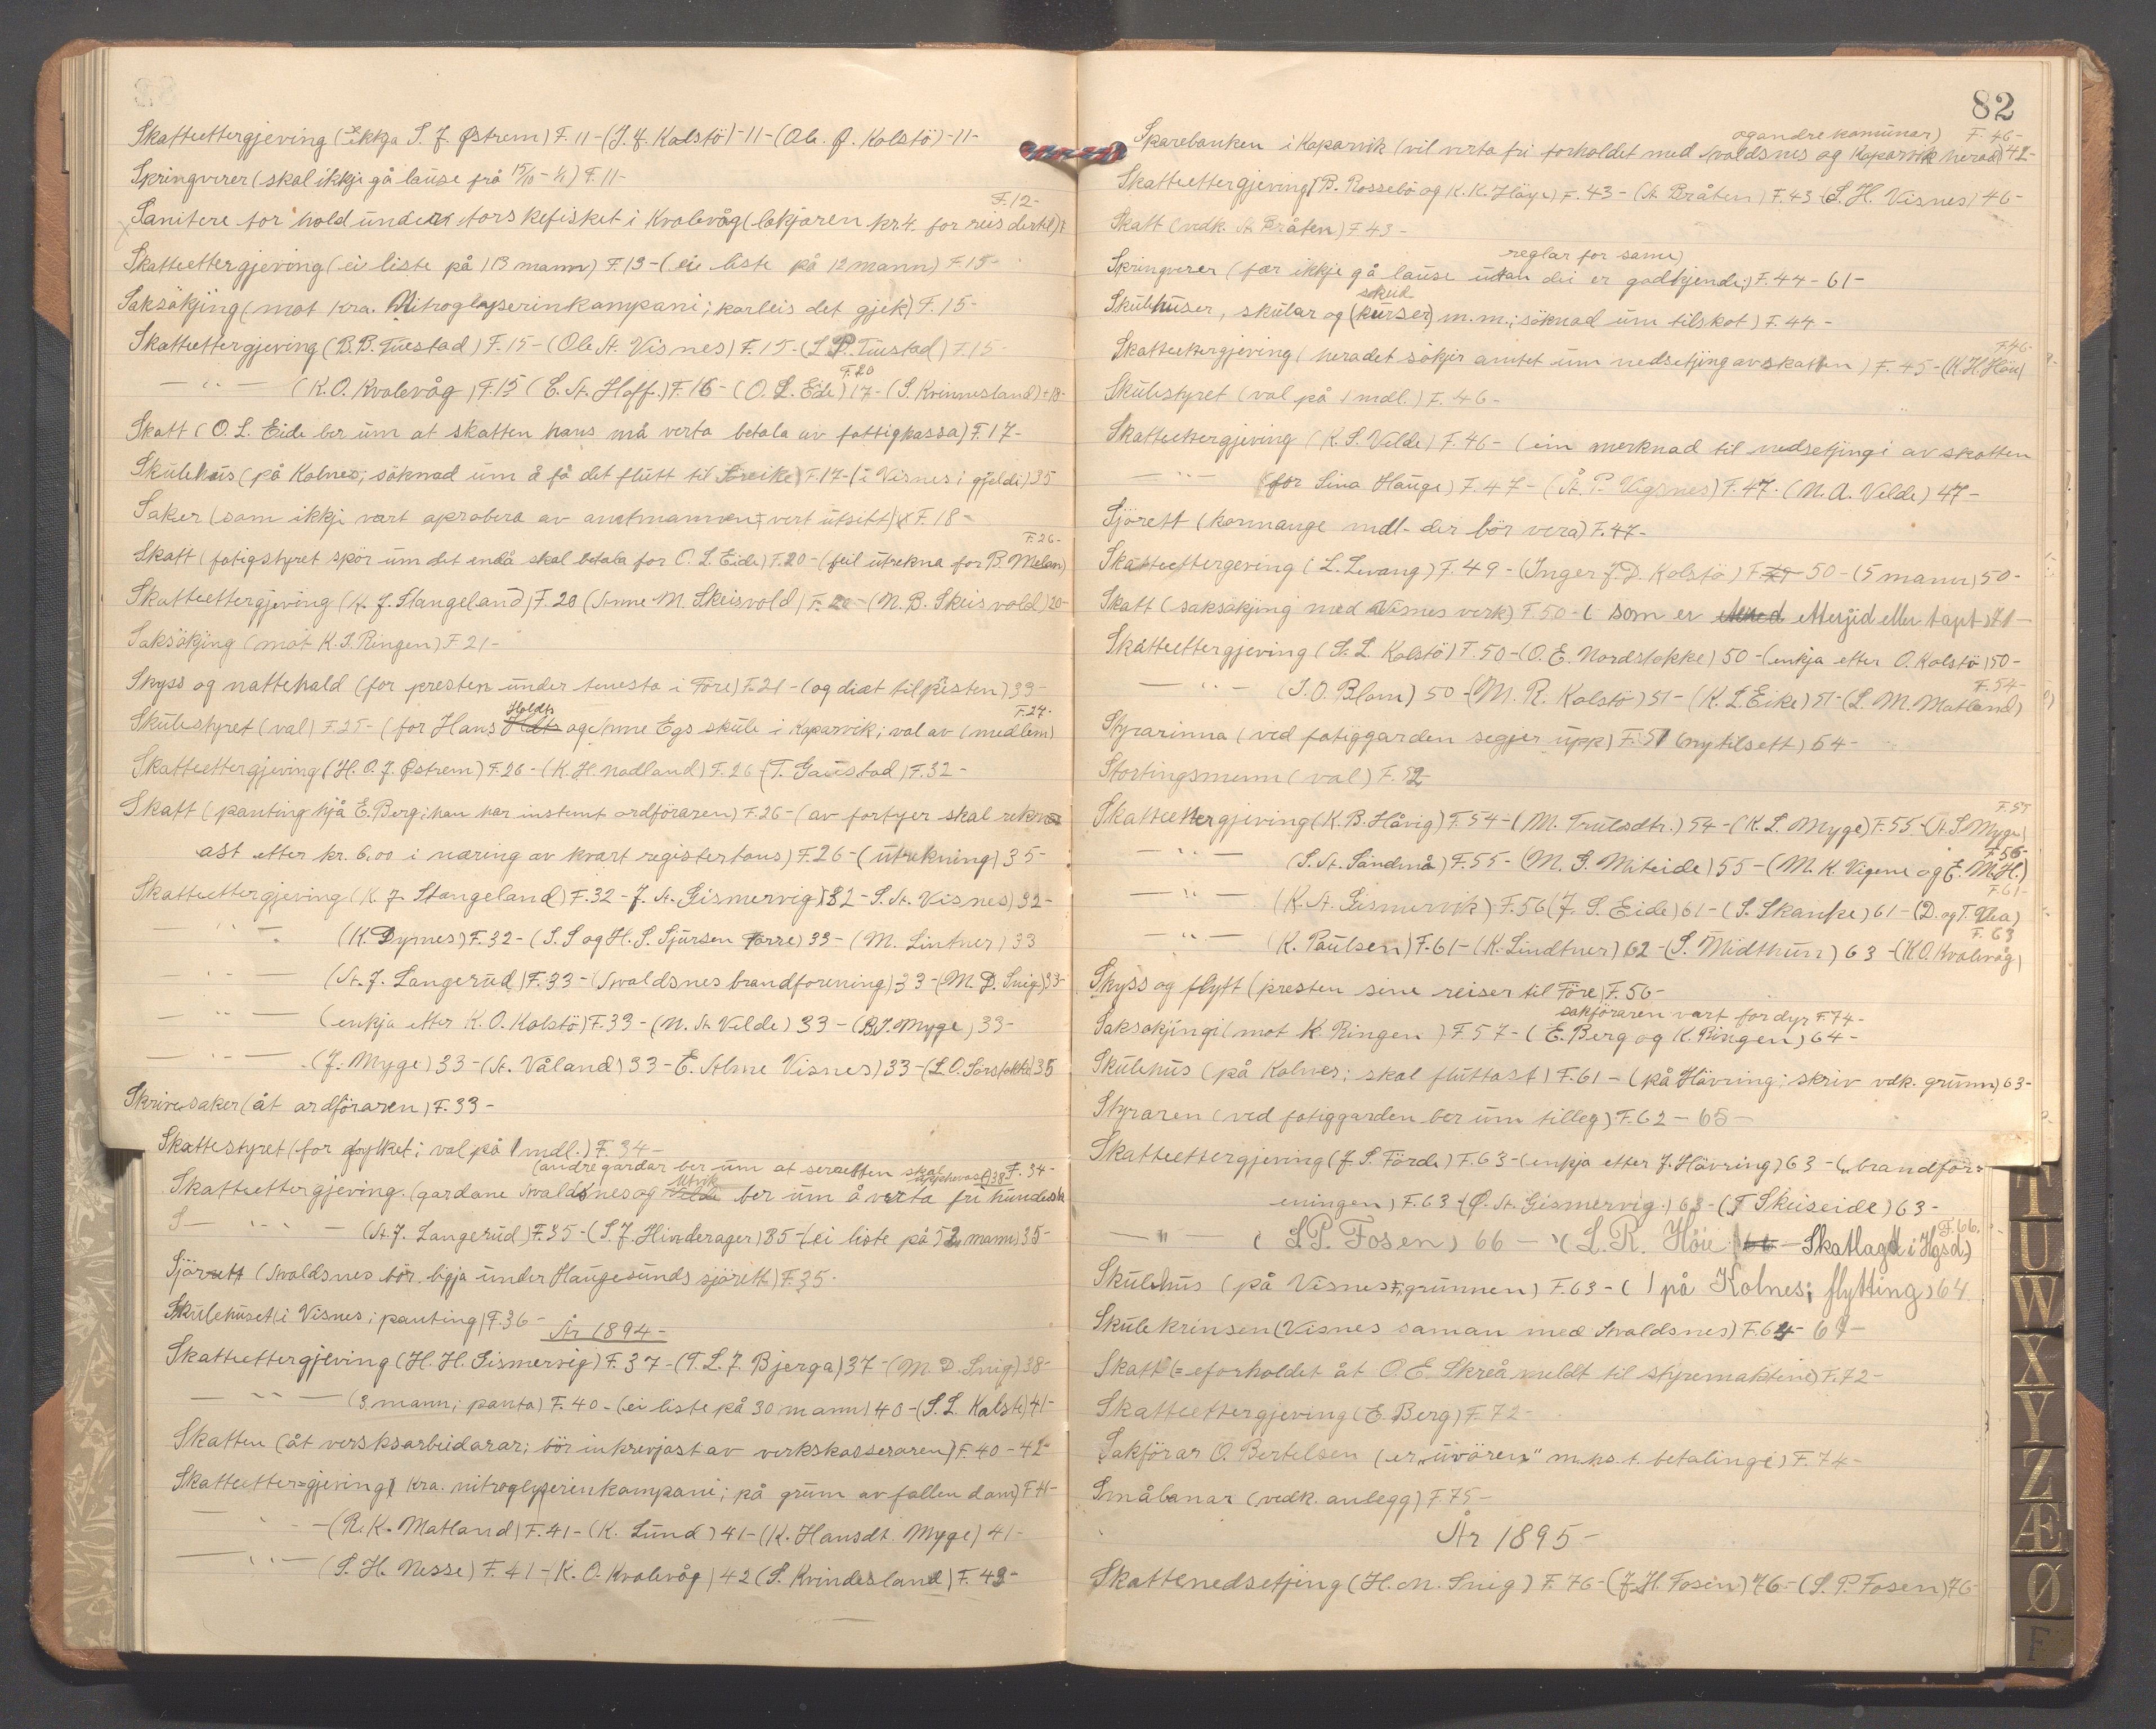 Skatteettergjeving (ekkja S. J. Østrem) F. 11 - (J. J. Kolstö) -11- (Ole J. Kolstö) -11-
Springverer (skal ikkji gå lause frå 15/10 - ) F. 11 -
F. 12 -
Sanitere for hold under torskefisket i Kvalevåg (lækjaren kr. 4. for reis dertil)
Skatteettergjeving (ei liste på 113 mann) F. 13 - (ei liste på 12 mann) F. 15 -
Saksökjing (mot Kra. Nitroglyserinkompani; korleis det gjek) F. 15 -
Skatteettergjeving (B. B. Tuestad) F. 15 - (Ole A. Visnes) F. 15 - (L. P. Tuestad) F. 15 -
F. 20
— " — (K. O. Kvalevåg) F. 15 (E. A. Hoff.) F. 16 - (O. L. Eide) 17 - (S. Kvinnesland) 18 -
Skatt (O. L. Eide ber um at skatten hans må verta betala av fattigkassa) F. 17 -
Skulehus (på Kolnes; söknad um å få det flutt til Sreike) F. 17 - (i Visnes i gjeldi) 35
Saker (som ikkji vart aprobera av amtmannen; vert utsitt) F. 18 -
F. 26 -
Skatt (fatigstyret spör um det endå skal betala for O. L. Eide) F. 20 - (feil utrekna for B. Melan)
Skatteettergjeving (K. J. Stangeland) F. 20 (Anne M. Skeisvold) F. 20 - (N. B. Skeisvold) 20 -
Saksökjing (mot K. S. Ringen) F. 21 -
Skyss og nattehald (for presten under tenesta i Före) F. 21 - (og diæt til presten) 33 -
Holdts F. 27 -
Skulestyret (val) F. 25 - (for Hans og Anne Egs skule i Kopervik; val av 1 medlem)
Skatteettergjeving (H. O. J. Østrem) F. 26 - (K. H. Nadland) F. 26 (T. Gaustad) F. 32 -
Skatt (panting hjå E. Berg; han har instemt ordföraren) F. 26 - (av fartyer skal rekn
ast etter kr. 6.00 i næring av kvart registertons) F. 26 - (utrekning) 35 -
Skatteettergjeving (K. J. Stangeland) F. 32 - J. A. Gismervig) 32 - S. A. Visnes) 32 -
— " — (K. Dyrnes) F. 32 - (S. S og H. S. Sjursen Förre) 33 - (M. Lintner) 33
— " — (A. J. Langerud) F. 33 - (Avaldsnes brandforening) 33 - (M. D. Snig) 33 -
— " — (enkja etter K. O. Kolstö) F. 33 - (N. A. Velde) 33 - (B. J. Myge) 33 -
— " — (J. Myge) 33 - (A. Våland) 33 - E. Alme Visnes) 33 - (L. O. Sörstokke) 35
Skrivesaker (åt ordföraren) F. 33 -
Skattestyret (for fylket; val på 1 mdl.) F. 34 -
(andre gardar ber um at serretten skal upphevast) 38 F. 34 -
Utvik
Skatteettergjeving (gardane Avaldsnes og ber um å verta fri hundesk
S — " — (A. J. Langerud) F. 35 - (S. J. Hinderager) 35 - (ei liste på 52 mann) 35 -
Sjörett (Avaldsnes bör ligja under Haugesunds sjörett) F. 35 -
Skulehuset (i Visnes; panting) F. 36 -
År 1894 -
Skatteettergjeving (H. H. Gismervig) F. 37 - (T. L. J. Bjerga) 37 - (M. D. Snig) 38 -
— " — (3 mann; panta) F. 40 - (ei liste på 30 mann) 40 - (S. L. Kolstö) 41 -
Skatten (åt versksarbeidarar; bör inkrevjast av verkskasseraren) F. 40 - 42 -
Skatteetter=gjeving (Kra. nitroglyserinkompani; på grunn av fallen dom) F. 41 -
— " — (R. K. Matland) F. 41 - (K. Lund) 41 - (K. Hansdt. Myge) 41 -
— " — (S. H. Nesse) F. 41 - (K. O. Kvalevåg) 42 (S. Kvindesland) F. 43 -
82
og andre komunar) F. 46 -
Sparebanken i Kopervik (vil verta fri forholdet med Avaldsnes og Kopervik herad) 42 -
Skatteettergjeving (B. Rossebö og K. K. Höye) F. 43 - (A. Bråten) F. 43 (S. H. Visnes) 46 -
Skatt (vedk. A. Bråten) F. 43 -
reglar for same)
Springverer (fær ikkje gå lause utan dei er godkjende;) F. 44 - 61 -
skule
Skulehuser, skular og (kurser) m.m.; söknad um tilskot) F. 44 -
F. 46 -
Skatteettergjeving (heradet sökjer amtet um nedsetjing av skatten) F. 45 - (K. H. Höie)
Skulestyret (val på 1 mdl.) F. 46 -
Skatteettergjeving (K. S. Velde) F. 46 - (ein merknad til nedsetjingi av skatten
— " — (for Sina Hauge) F. 47 - (A. P. Vignes) F. 47. (N. A. Velde) 47 -
Sjörett (kormange mdl. der bör vera) F. 47 -
Skatteettergeving (L. Levang) F. 49 - (Inger J. D. Kolstö) F 50 - (5 mann) 50 -
Skatt (saksökjing med Visnes verk) F. 50 - ( som er etterjid eller tapt) 71 -
Skatteettergjeving (S. L. Kolstö) F. 50 - (O. E. Nordstokke) 50 - (enkja etter O. Kolstö) 50 -
F. 54 -
— " — (J. O. Blom) 50 - (M. R. Kolstö) 51 - (K. L. Eike) 51 - (L. M. Matland)
Styrarinna (ved fatiggarden segjer upp) F. 51 (ny tilsett) 54 -
Stortingsmenn (val) F. 52 -
F. 55
Skatteettergjeving (K. B. Håvig) F. 54 - (M. Trulsdtr.) 54 - (K. L. Myge) F. 55 - (A. S. Myge)
F. 56 -
— " — (S. A. Sandmå) F. 55 - (M. G. Miteide) 55 - (M. K. Vigene og E. M. H.)
F. 61 -
— " — (K. A. Gismervik) F. 56 (J. S. Eide) 61 - (S. Skanke) 61 - (D. og T. Vea)
F. 63
— " — (K. Paulsen) F. 61 - (K. Lindtner) 62 - (S. Midthun) 63 - (K. O. Kvalevåg)
Skyss og flytt (presten sine reiser til Före) F. 56 -
sakföraren vart for dyr F. 74 -
Saksokjingi (mot K. Ringen) F. 57 - (E. Berg og K. Ringen) 64 -
Skulehus (på Kolnes; skal fluttast) F. 61 - (på Hävring; skriv vdk. grunn) 63 -
Styraren (ved fatiggarden ber um tilleg) F. 62 - 65 -
Skatteettergjeving (J. S. Förde) F. 63 - (enkja etter J. Hävring) 63 - („brandfor=
eningen) F. 63 - (Ø. A. Gismervig.) 63 - (T. Skeiseide) 63 -
F. 66.
— " — (S. P. Fosen) 66 — (L. R. Höie — Skatlagd i Hgsd.)
Skulehus (på Visnes; grunnen) F. 63 - ( på Kolnes; flytting) 64
Skulekrinsen (Visnes saman med Avaldsnes) F. 64 - 69 -
Skatt (=eforholdet åt O. E. Skreå meldt til styremaktine) F. 72 -
Skatteettergjeving (E. Berg) F. 72 -
Sakförar O. Bertelsen (er „uvören" m.h.s.t. betalingi) F. 74 -
Småbanar (vedk. anlegg) F. 75 -
År 1895 -
Skattenedsetjing (H. M. Snig) F. 76 - (J. H. Fosen) 76 - (S. P. Fosen) 76 -
T
U
W
X
Y
Z
Æ
Ø